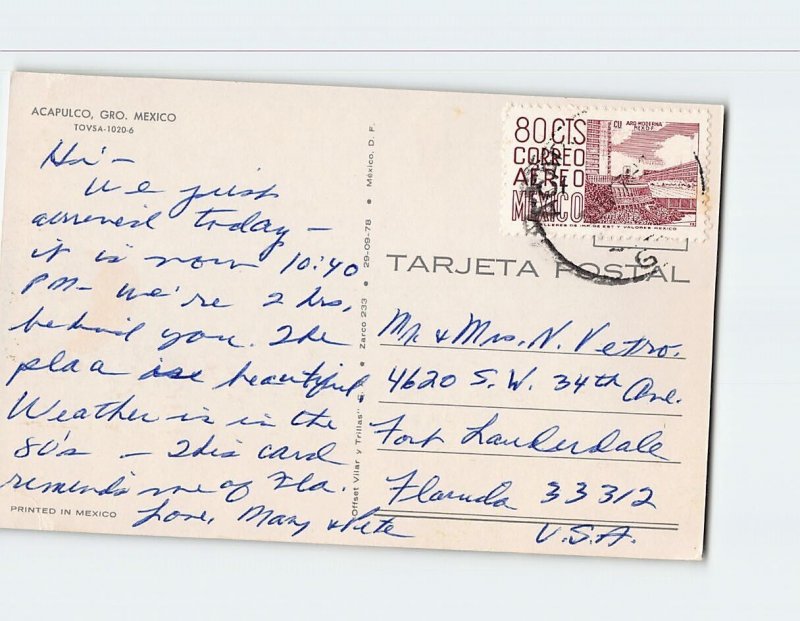 ACAPULCO, GRO. MEXICO
TOVSA-1020-6
Hi -
We just
arrived today -
it is now 10:40
PM - We're 2 hrs.
behind you. The
is beautiful
Weather is in the
80's - This card
reminds me of Fla.
Love, Mary & Pete
PRINTED IN MEXICO
Offset Vilar y Trillas" • Zarco 233 • 29-09-78 • México, D. F.
80 CTS
CORREO
AEREO
MEXICO
CU ARQ MODERNA
MEX D F
TALLERES DE IMP. DE EST. Y VALORES MEXICO
TARJETA POSTAL
Mr. & Mrs. N. Vetro.
4620 S.W. 34th Ave.
Fort Lauderdale
Florida 33312
U.S.A.